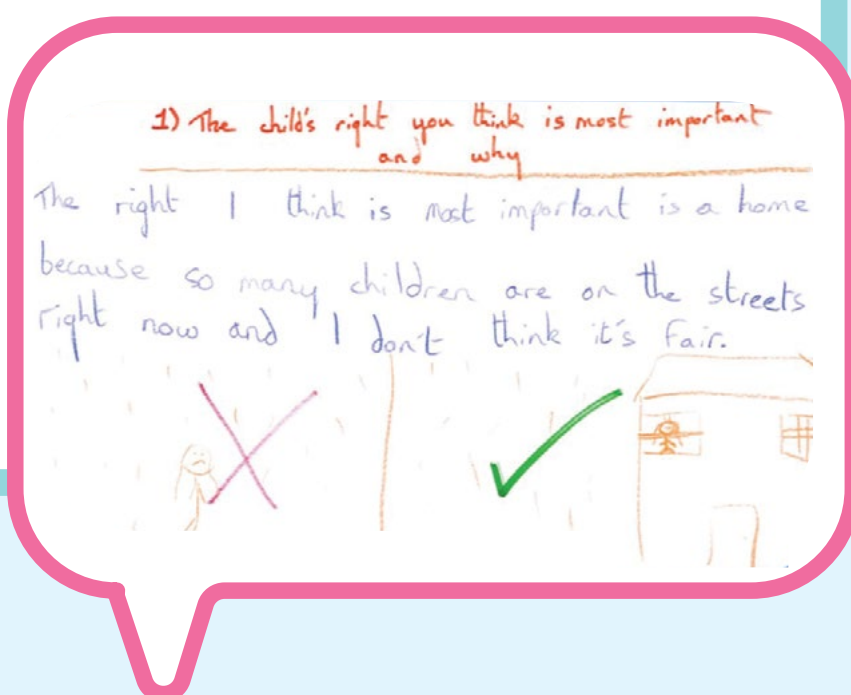 1) The child's right you think is most important
and why
The right I think is most important is a home
because so many children are on the streets
right now and I don't think it's fair.